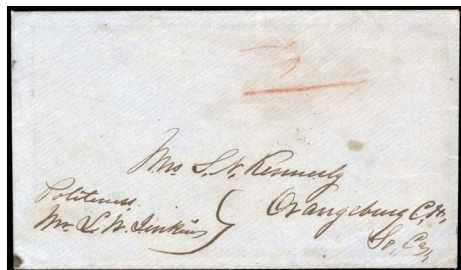 Mrs S. N. Kennerly
Politeness.
Mr. L. W. Jenkins
Orangeburg C. H.,
So, Ca,